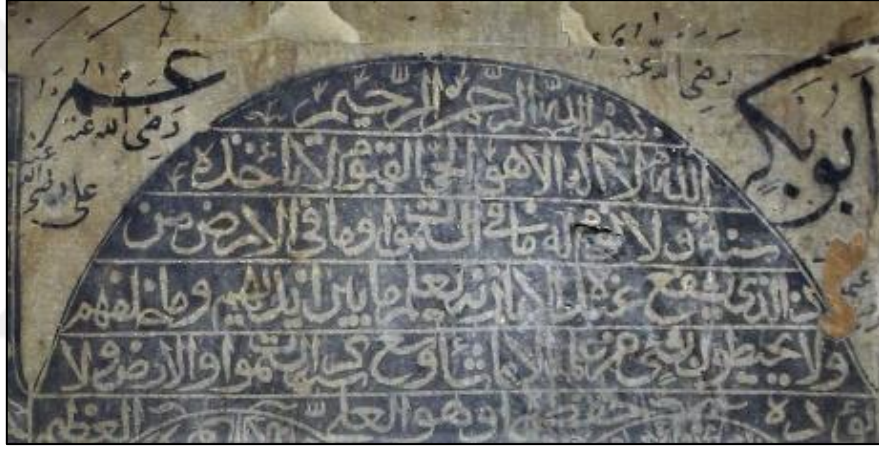 ابو بكر
رضي الله عنه
عمر
رضي الله عنه
علي رضي الله عنه
بسم الله الرحمن الرحيم
الله لا اله الا هو الحي القيوم لا تأخذه
سنة ولا نوم له ما في السموات وما في الارض من
ذا الذي يشفع عنده الا باذنه يعلم ما بين ايديهم وما خلفهم
ولا يحيطون بشئ من علمه الا بما شاء وسع كرسيه السموات والارض ولا
يؤده حفظهما وهو العلي العظيم